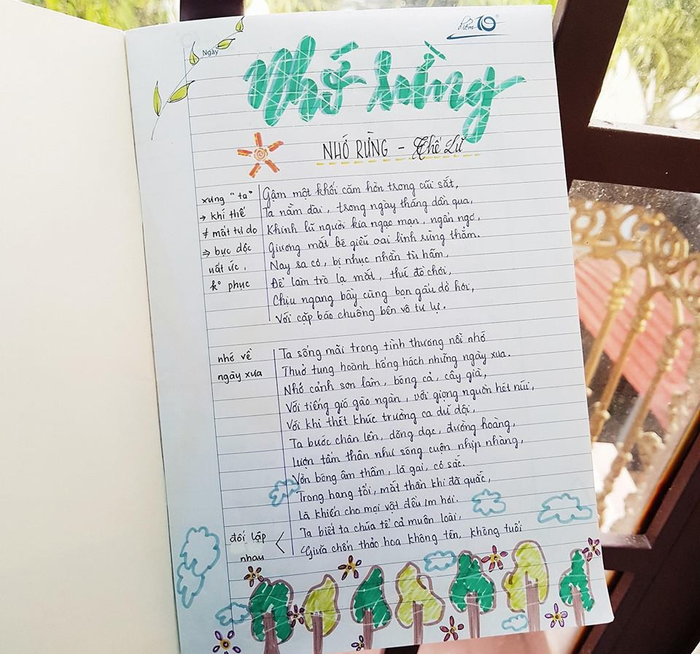 điểm 10
Ngày
Nhớ rừng
NHỚ RỪNG - Thế Lữ
xưng "ta"
→ khí thế
≠ mất tự do
⇒ bực dọc
uất ức,
ko phục
Gậm một khối căm hờn trong cũi sắt,
Ta nằm dài, trong ngày tháng dần qua,
Khinh lũ người kia ngạo mạn, ngẩn ngơ,
Giương mắt bé giễu oai linh rừng thẳm.
Nay sa cơ, bị nhục nhằn tù hãm,
Để làm trò lạ mắt, thứ đồ chơi,
Chịu ngang bầy cùng bọn gấu dở hơi,
Với cặp báo chuồng bên vô tư lự.
nhớ về
ngày xưa
Ta sống mãi trong tình thương nỗi nhớ
Thuở tung hoành hống hách những ngày xưa.
Nhớ cảnh sơn lâm, bóng cả, cây già,
Với tiếng gió gào ngàn, với giọng nguồn hét núi,
Với khi thét khúc trường ca dữ dội,
Ta bước chân lên, dõng dạc, đường hoàng,
Lượn tấm thân như sóng cuộn nhịp nhàng,
Vờn bóng âm thầm, lá gai, cỏ sắc.
Trong hang tối, mắt thần khi đã quắc,
Là khiến cho mọi vật đều im hơi.
đối lập
nhau
Ta biết ta chúa tể cả muôn loài,
Giữa chốn thảo hoa không tên, không tuổi